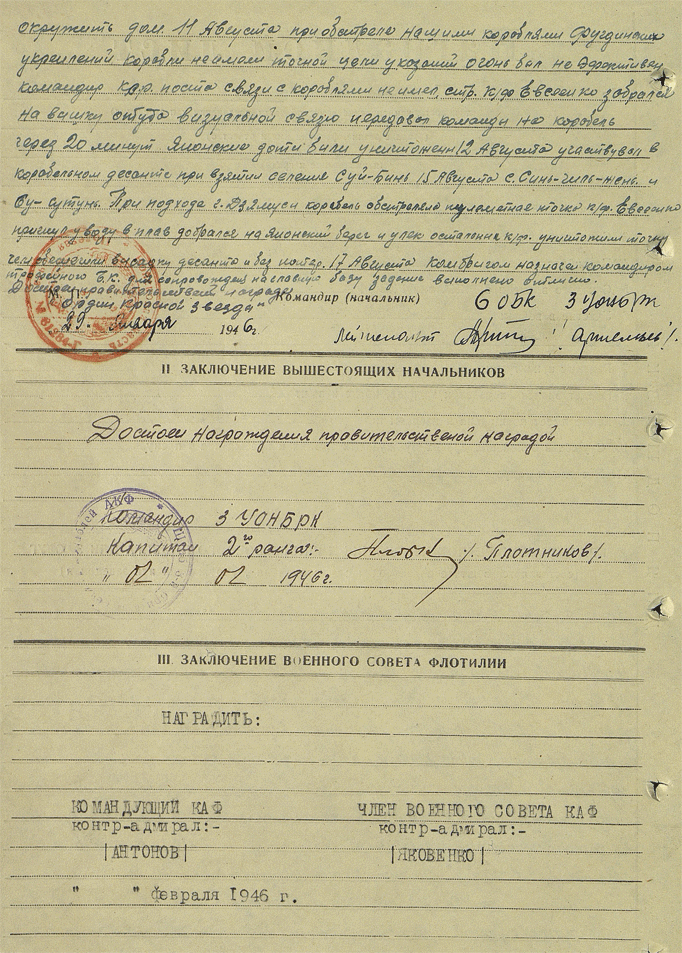 окружить дом. 11 Августа при обстреле нашими кораблями Фугдинских
укреплений корабли не имели точной цели указаний огонь был не эфективен
командир кор. поста связи с кораблями не имел, стр. к/ф Евсеенко забрался
на вышку оттуда визуальной связю передавал команды на корабль
через 20 минут Японские доты были уничтожены 12 Августа участвувал в
корабельном десанте при взятии селения Суй-Бинь 15 Августа с. Синь-чиль-жень. и
Фу-сутунь. При подходе г. Дзямусы корабль обстреляла пулеметная точка к/ф. Евсеенко
прыгнул у воду в плав добрался на Японский берег и увлек остальных к/ф. уничтожили точку
высадку десанта и без потерь. 17 Августа Комбригом назначен командиром
трофейного Б.К. для сопровождения на главную базу задание выполнено отлично.
Достоен правительственной награды
"Орден Красной Звезды" Командир (начальник) 6 ОБК 3 УОНБРК
29. Января 1946г. Лейтенант /Артемьев/.
II ЗАКЛЮЧЕНИЕ ВЫШЕСТОЯЩИХ НАЧАЛЬНИКОВ
Достоен награждения правительственой наградой
Командир 3 УОНБРК
Капитан 2го ранга:- /Плотников/.
" 02 " 02 1946г.
III. ЗАКЛЮЧЕНИЕ ВОЕННОГО СОВЕТА ФЛОТИЛИИ
НАГРАДИТЬ:
КОМАНДУЮЩИЙ КАФ ЧЛЕН ВОЕННОГО СОВЕТА КАФ
контр-адмирал:- контр-адмирал:-
|АНТОНОВ| |ЯКОВЕНКО|
" " февраля 1946 г.